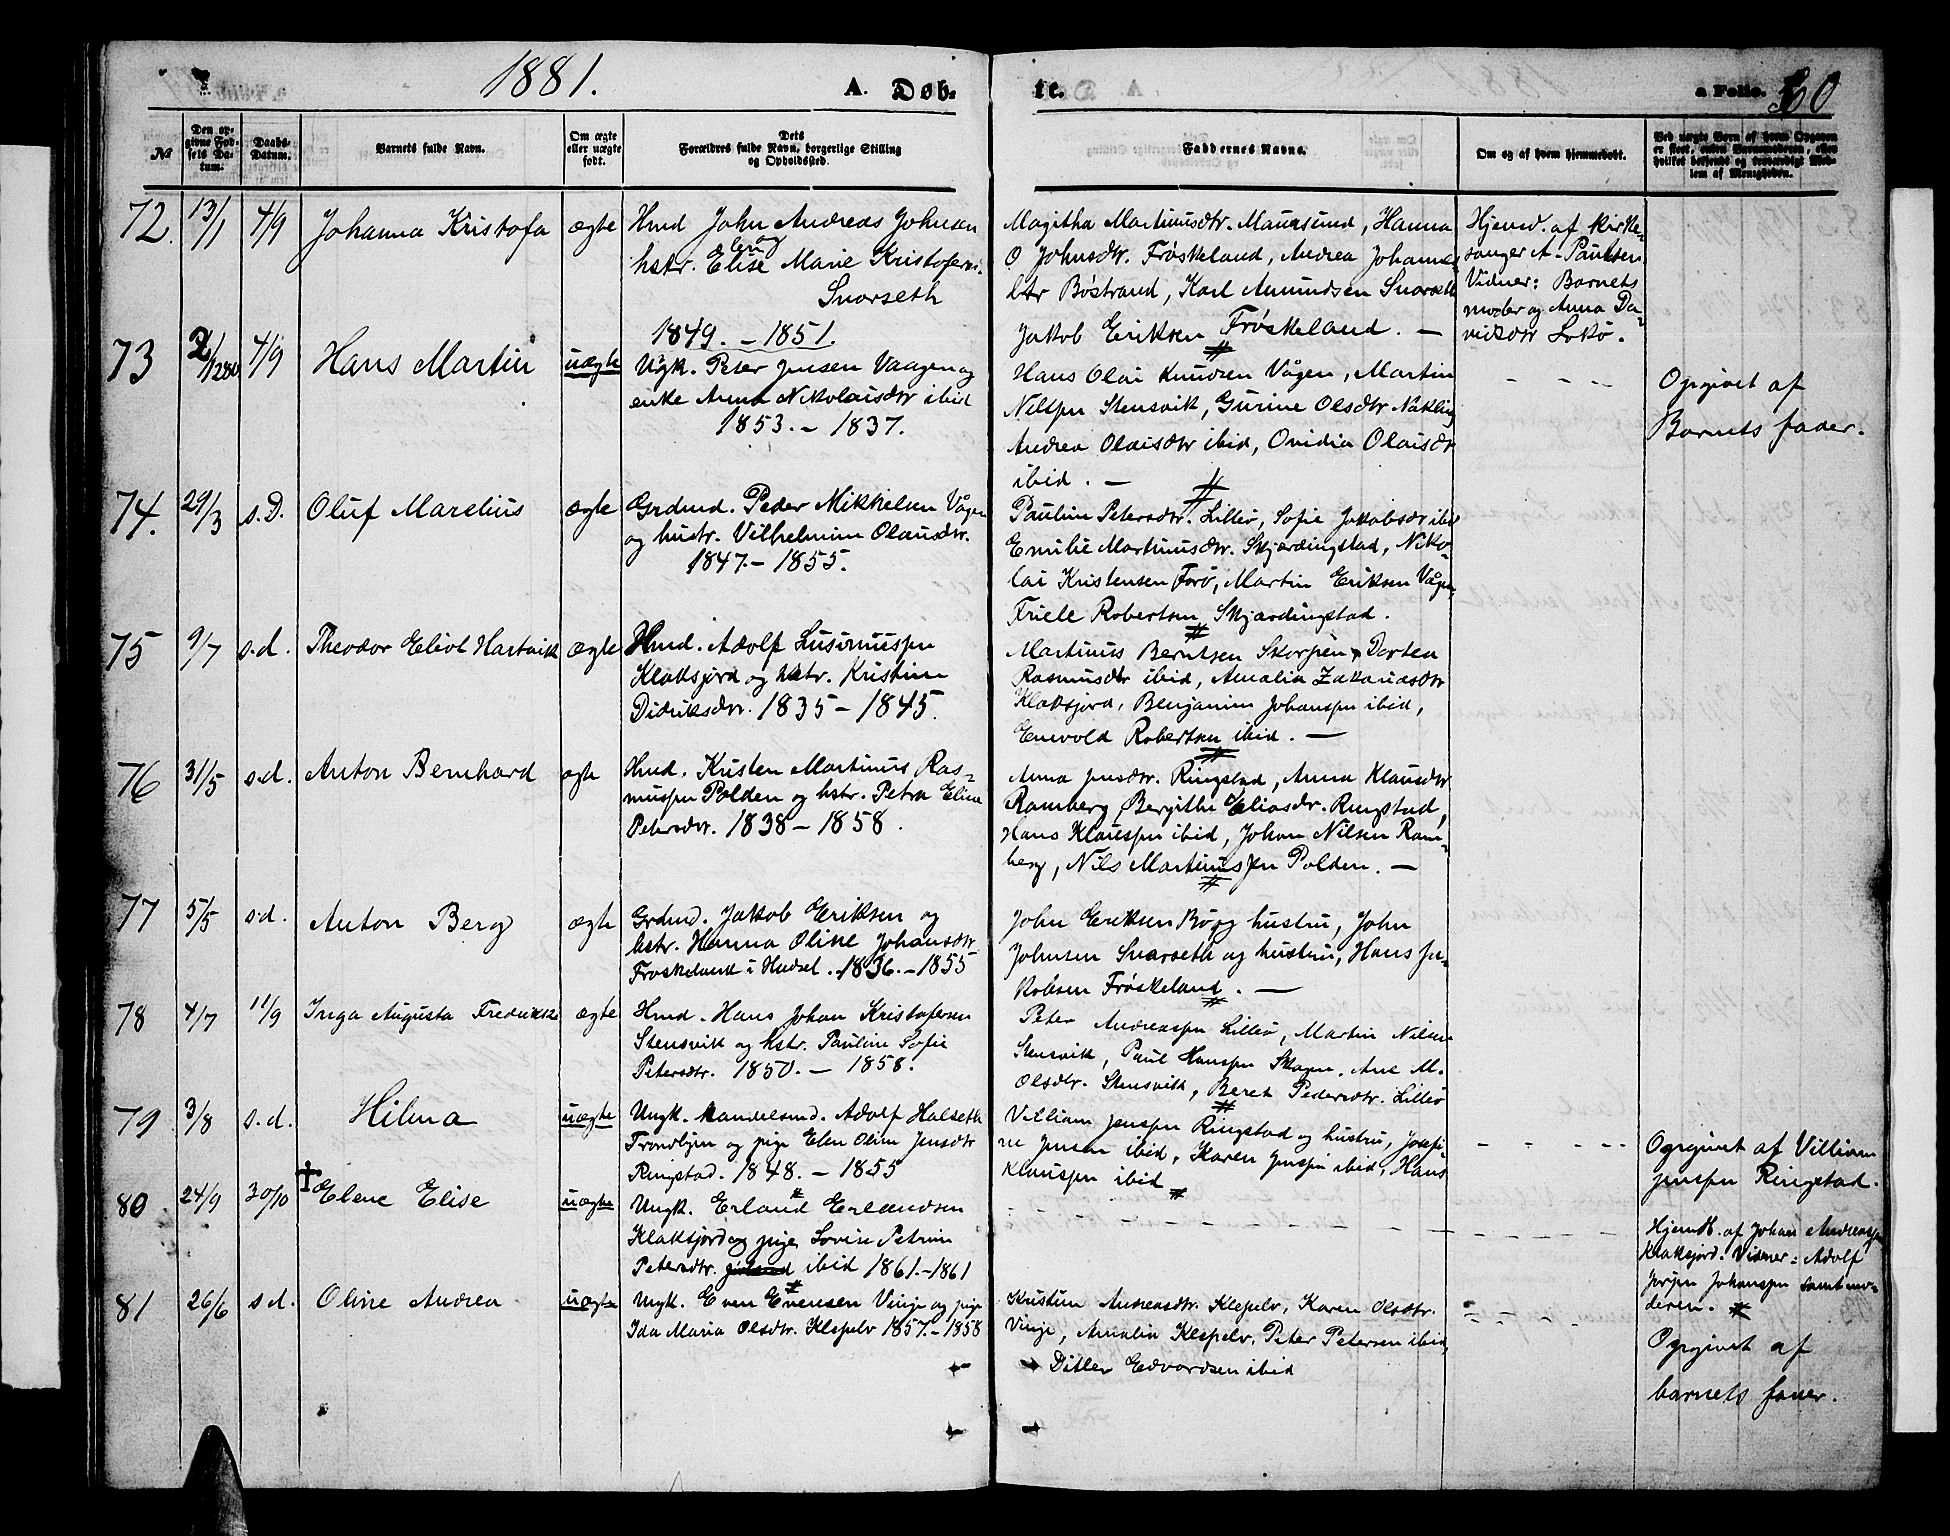 1881.
A. Døb-
te.
a Folio. 60
№
Den op-
givne Fød-
sels Da-
tum.
Daabs-
Datum.
Barnets fulde Navn.
Om ægte
eller uægte
født.
Dets
Forældres fulde Navn, borgerlige Stilling
og Opholdssted.
Faddernes Navne.
Om og af hvem hjemmedøbt.
Ved uægte Børn af hvem Opgaven
er skeet, enten Barnemoderen, eller
hvilket bekjendt og troværdigt Med-
lem af Menigheden.
72. 13/1 4/9 Johanna Kristofa ægte
Hmd John Andreas Johnsen
og
hstr. Elise Marie Kristofers-
Snarseth
1849. - 1851.
Magitha Martinusdtr. Maursund, Hanna
O Johnsdtr. Frøskeland, Andrea Johannes
dtr Bøstrand, Karl Amundsen Snarseth
Jakob Eriksen Frøskeland. —
Hjemd. af Kirke-
sanger A. Paulsen
Vidner: Barnets
moder og Anna Da-
vidsdtr Sokø.
73 4/9 Hans Martin uægte
Ugk. Peter Jensen Vaagen og
enke Anna Nikolaisdtr ibid
1853. - 1837.
Hans Olai Knudsen Vågen, Martin
Nilspn Stensvik, Gurine Olsdtr Nøkling
Andrea Olaisdtr ibid, Ovidia Olaisdtr
ibid. —
Opgivet af
Barnets fader.
74. 29/3 s.D. Oluf Marelius ægte
Grdmd. Peder Mikkelsen Vågen
og hustr. Vilhelmine Olausdtr.
1847. - 1855.
Pauline Petersdtr. Lillø, Sofie Jakobsdtr ibid
Emilie Martinusdtr. Skjærdingstad, Niko-
lai Kristensen Forø, Martin Eriksen Vågen,
Friele Robertsen Skjærdingstad.
75 9/7 s.d. Theodor Eliot Hartvik ægte
Hmd. Adolf
Klaksjord og hstr. Kristine
Didriksdtr. 1835 - 1845.
Martinus Berntsen Skorpen, Dortea
Rasmusdtr ibid, Amalia Zakariasdtr
Klaksjord, Benjamin Johanspn ibid,
Enevold Robertsen ibid. —
76 31/5 s.d. Anton Bernhard ægte
Hmd. Kristen Martinus Ras-
muspn Polden og hstr. Petra Eline
Petersdtr. 1838 - 1858.
Anna Jensdtr. Ringstad, Anna Klausdtr
Ramberg, Bergithe Eliasdtr. Ringstad,
Hans Klauspn ibid, Johan Nilsen Ram-
berg, Nils Martinuspn Polden. —
77 5/5 s.d. Anton Berg ægte
Grdmd. Jakob Eriksen og
hstr. Hanna Oline Johansdtr
Frøskeland i Hadsel. 1836. - 1855
John Eriksen Bø og hustru, John
Johnsen Snarseth og hustru, Hans Ja-
kobsen Frøskeland. —
78 4/7 11/9 Inga Augusta Fredrikke ægte
Hmd. Hans Johan Kristofersen
Stensvik og hstr. Pauline Sofie
Petersdtr. 1850. - 1858.
Peter Andreaspn Lillø, Martin Nilsen
Stensvik, Paul Hanspn Skagen, Ane M.
Olsdtr. Stensvik, Beret Pedersdtr. Lillø
79 3/8 s.d. Hilma uægte
Ungk. Handelsmd. Adolf Halseth
Trondhjem og pige Elen Oline Jensdtr
Ringstad. 1848. - 1855
Villiam Jenspn Ringstad og hustru, Josefi-
ne Jensen ibid, Karen Jenspn ibid, Hans
Klauspn ibid
Opgivet af Villiam
Jenspn Ringstad.
80 24/9 30/10 Elene Elise uægte
Ungk. Erland Erlandsen
Klaksjord og pige Lovise Petrine
Petersdtr. ibid 1861. - 1861
Hjemdt. af Johan Andreaspn
Klaksjord. Vidner: Adolf
Jørgen Johanspn samt mo-
deren.
81 26/6 s.d. Oline Andrea uægte
Ungk. Even Evensen Vinje og pige
Ida Maria Olsdtr. Klepelv 1857. - 1858
Kristine Andreasdtr. Klepelv, Karen Olsdtr.
Vinje, Amalia Klepelv, Peter Petersen ibid,
Ditlev Edvardsen ibid
Opgivet af
barnets fader.